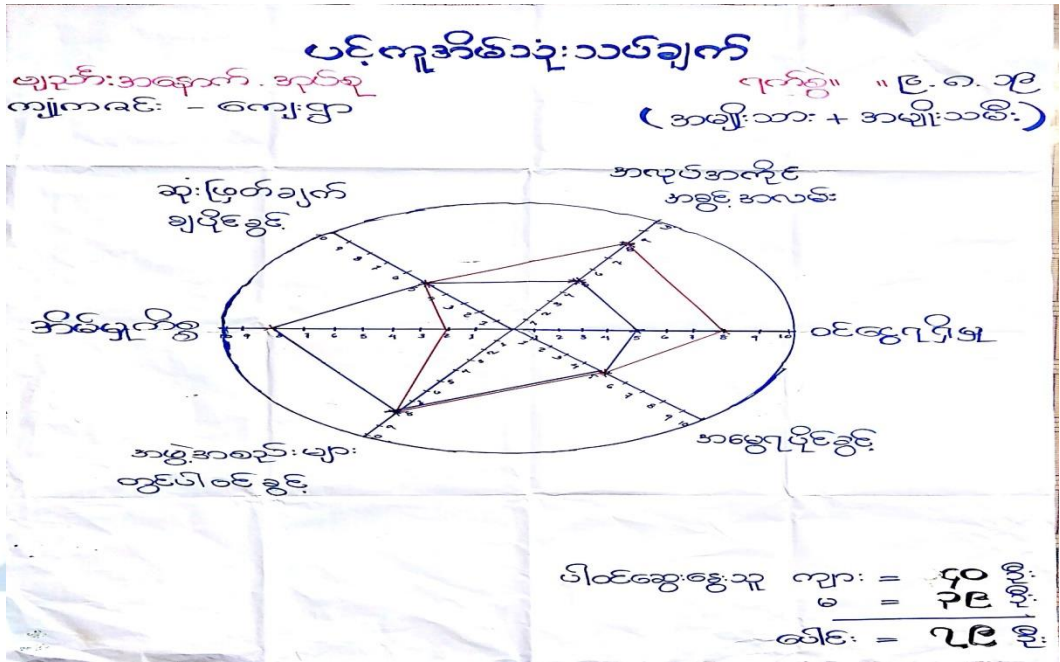 ပင့်ကူအိမ်သုံးသပ်ချက်
ဗျည်းအနောက်. အုပ်စု
ရက်စွဲ။ ။ ၉. ၈. ၁၉
ကျုံကဇင်း - ကျေးရွာ
(အမျိုးသား + အမျိုးသမီး)
ဆုံးဖြတ်ချက်
ချပိုင်ခွင့်
အလုပ်အကိုင်
အခွင့်အလမ်း
အိမ်မှုကိစ္စ
ဝင်ငွေရရှိမှု
အဖွဲ့အစည်းများ
တွင်ပါဝင်ခွင့်
အမွေရပိုင်ခွင့်
ပါဝင်ဆွေးနွေးသူ ကျား = ၄၀ ဦး
မ = ၃၉ ဦး
ပေါင်း = ၇၉ ဦး